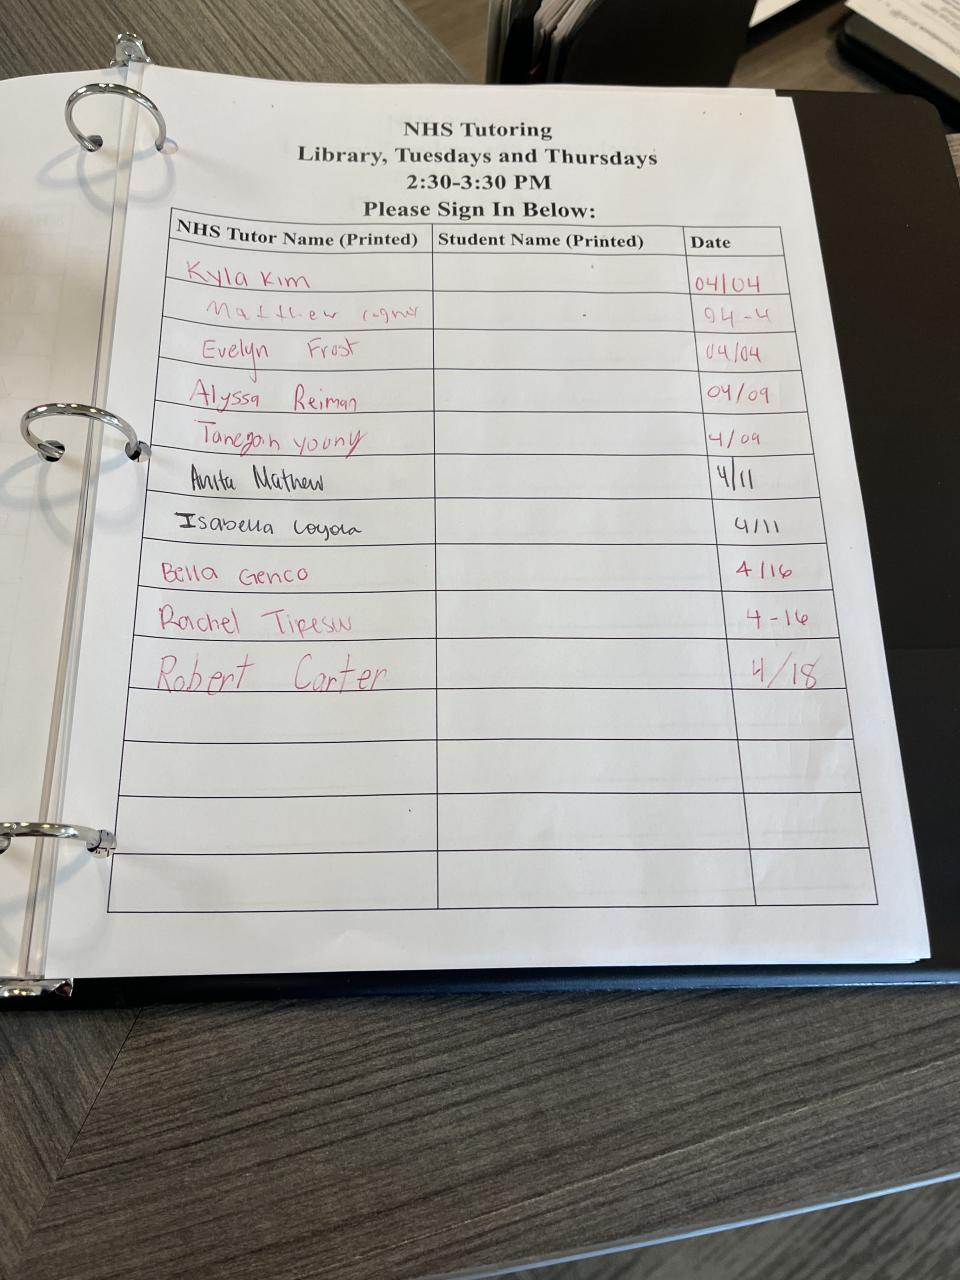 NHS Tutoring
Library, Tuesdays and Thursdays
2:30-3:30 PM
Please Sign In Below:
NHS Tutor Name (Printed) Student Name (Printed) Date
Kyla Kim 04/04
Matthew 04-4
Evelyn Frost 04/04
Alyssa Reiman 04/09
4/09
Anita Mathew 4/11
Isabella Loyola 4/11
Bella Genco 4/16
Rachel 4-16
Robert Carter 4/18